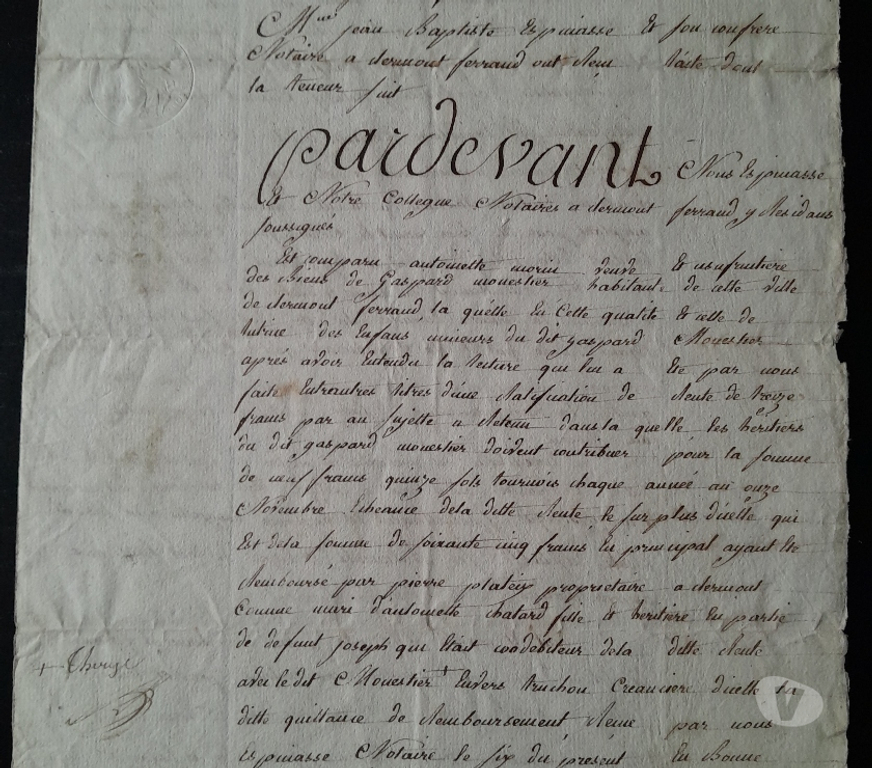 Mtre jean Baptiste Espinasse Et son confrere
Notaire a clermont ferrand ont Reçu l'acte dont
la teneur suit
Pardevant Nous Espinasse
Et Notre Collegue Notaires a clermont ferrand, y Residans
soussignés
Est comparu antoinette morin veuve Et usufruitiere
des Biens de Gaspard mouestier habitante de cette ville
de clermont ferrand, la quélle En Cette qualité et celle de
tutrice des Enfans mineurs du dit gaspard Mouestier
aprés avoir Entendu la lecture qui lui a Eté par nous
faite Entreautres titres d'une Ratification de Rente de treize
frans par an sujette a Retenu dans la quelle les héritiers
du dit gaspard mouestier doivent contribuer pour la somme
de neuf frans quinze sols tournois chaque année au onze
Novembre Echeance dela ditte Rente le surplus d'icelle qui
Est dela somme de soixante cinq frans En principal ayant Eté
Remboursé par pierre plateix proprietaire a clermont
Comme mari d'antoinette chatard fille Et heritiere En partie
de defunt joseph qui Etait codebiteur dela ditte Rente
avec le dit Mouestier + Envers truchon Creanciere d'icelle la
ditte quittance de Remboursement Reçue par nous
Espinasse Notaire le six du present En Bonne
+ Therese
V